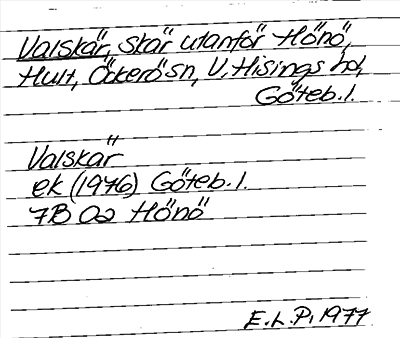 Valskär, skär utanför Hönö,
Hult, Öckerö sn, V. Hisings hd,
Göteb. l.
Valskär
ek (1976) Göteb. l.
7B 0a Hönö
E.L.P. 1977